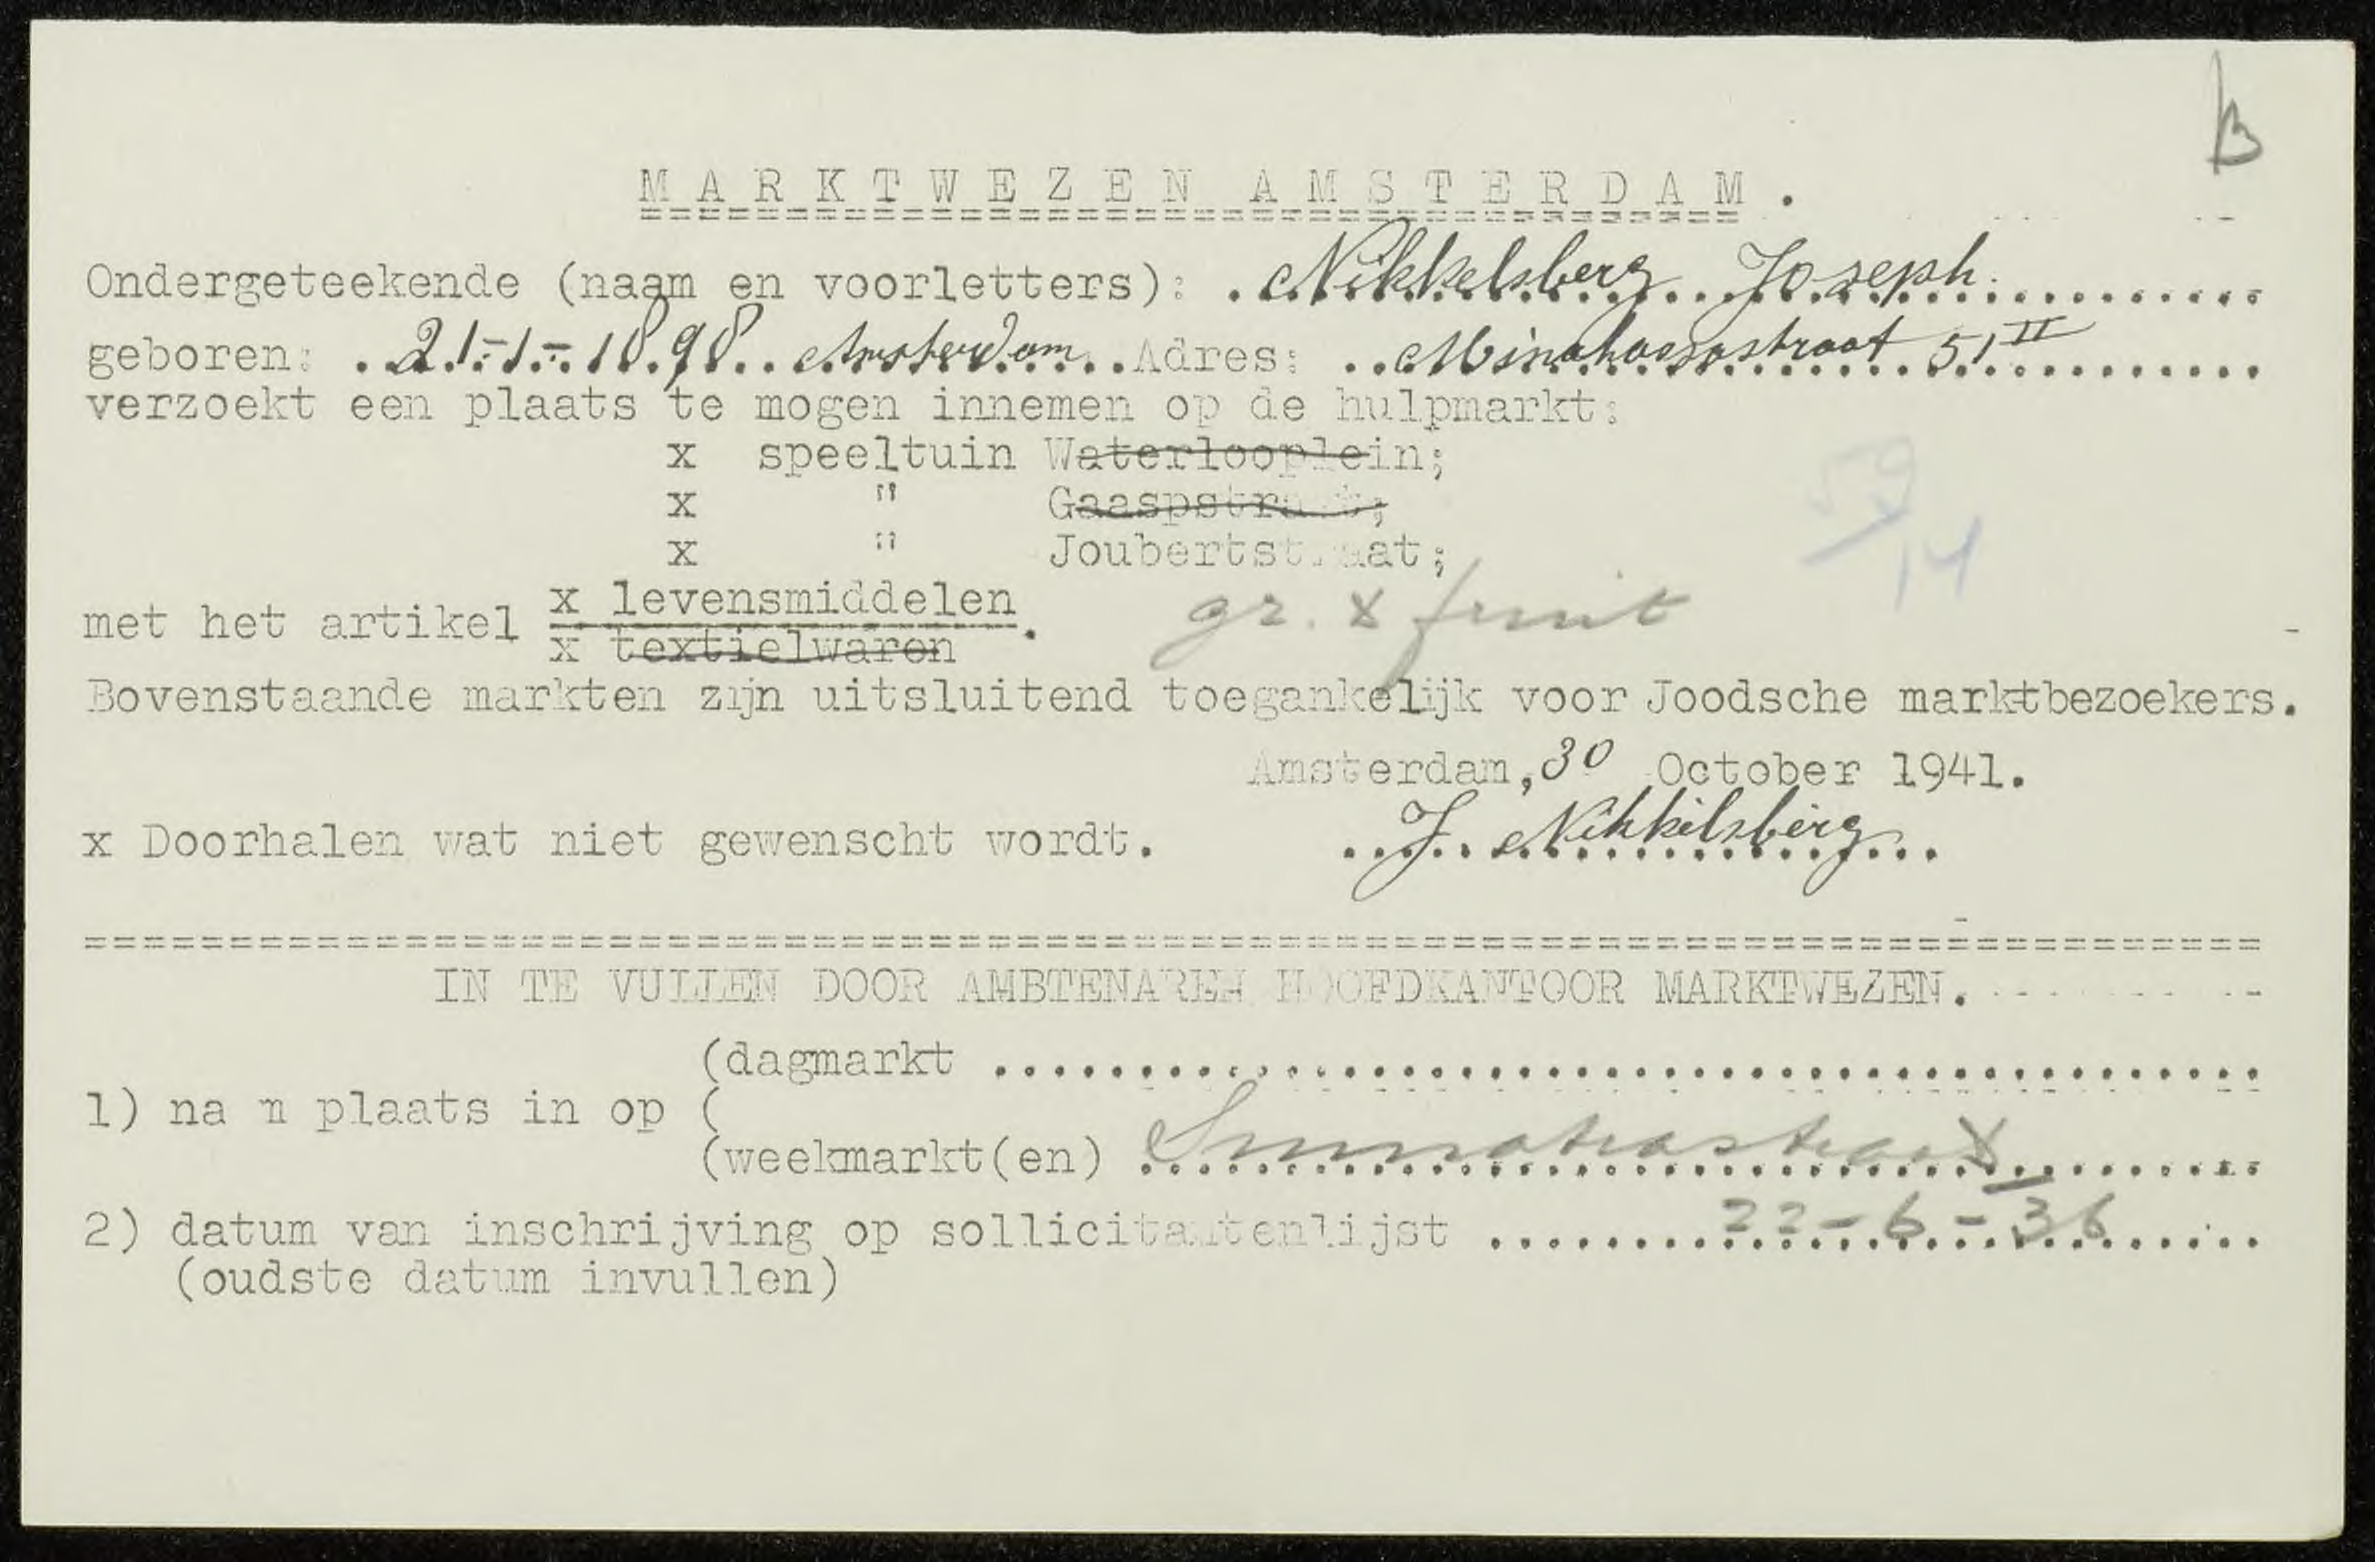 B
MARKTWEZEN AMSTERDAM.
Ondergeteekende (naam en voorletters): Nikkelsberg Joseph.
geboren: 21-1-1898 Amsterdam Adres: Minahassastraat 51 II
verzoekt een plaats te mogen innemen op de hulpmarkt:
x speeltuin Waterlooplein;
x " Gaaspstraat;
x " Joubertstraat;
59/14
met het artikel x levensmiddelen
x textielwaren.
gr. & fruit
Bovenstaande markten zijn uitsluitend toegankelijk voor Joodsche marktbezoekers.
Amsterdam, 30 October 1941.
x Doorhalen wat niet gewenscht wordt. J. Nikkelsberg
IN TE VULLEN DOOR AMBTENAREN HOOFDKANTOOR MARKTWEZEN.
(dagmarkt
1) na m plaats in op (
(weekmarkt(en) Sumatrastraat
2) datum van inschrijving op sollicitantenlijst 22-6-36
(oudste datum invullen)